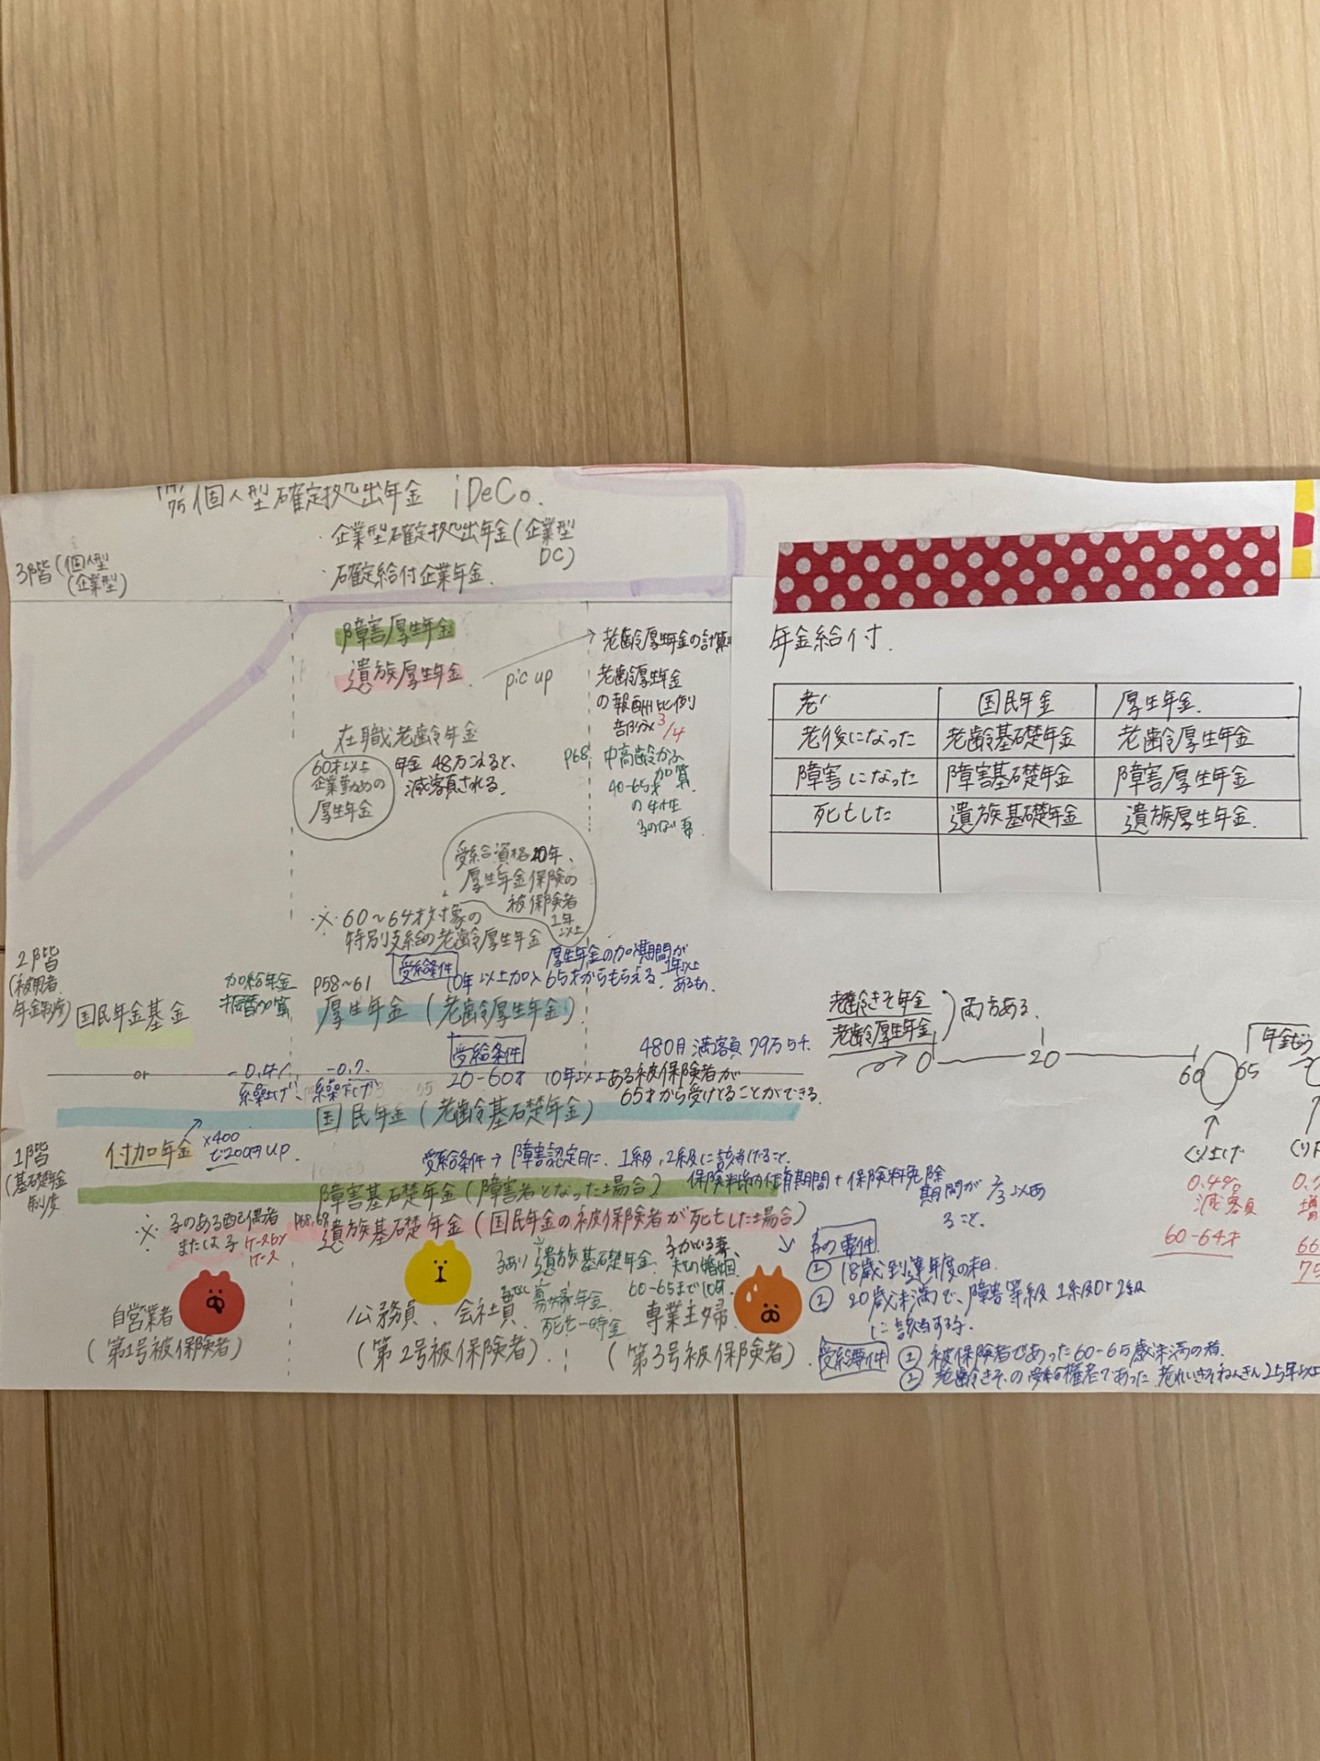 個人型確定拠出年金 iDeCo.
・企業型確定拠出年金(企業型
DC)
・確定給付企業年金.
3階(個人型
(企業型)
障害厚生年金
遺族厚生年金.
pic up
老齢厚生年金の計算
老齢厚生年金
の報酬比例
部分×3/4
在職老齢年金
60才以上
企業勤めの
厚生年金
年金 48万こえると、
減額される。
P68
中高齢かふ
加算
40-65才
の女性
子のない妻.
受給資格10年、
厚生年金保険の
被保険者
1年
以上
※ 60〜64才対象の
特別支給の老齢厚生年金
2階
(被用者
年金制度)
国民年金基金
加給年金
振替加算
P58〜61
受給条件
厚生年金の加入期間が
1年以上
あるもの.
10年以上加入 65才からもらえる.
厚生年金(老齢厚生年金)
or
-0.4%
繰上げ、
-0.7.
繰下げ
受給条件
480月 満額 79万5千.
20-60才 10年以上ある被保険者が
65才から受けとることができる.
国民年金(老齢基礎年金)
1階
(基礎年金
制度
付加年金
×400
で200円UP.
受給条件→障害認定日に、1級,2級に該当すること.
保険料納付済期間+保険料免除
期間が 2/3以あ
ること.
障害基礎年金(障害者となった場合)
遺族基礎年金(国民年金の被保険者が死亡した場合)
※ 子のある配偶者
または子
ケースby
ケース
子あり 遺族基礎年金
寡婦年金.
死亡一時金
子がいる妻、
60-65まで
自営業者
(第1号被保険者)
公務員、会社員
(第2号被保険者).
専業主婦
(第3号被保険者).
子の要件
① 18歳到達年度の末日.
② 20歳未満で、障害等級 1級or2級
に該当する子.
受給要件
① 被保険者であった60-65歳未満の者.
② 老齢きその受給権者であった
年金給付.
老
国民年金
厚生年金.
老後になった
老齢基礎年金
老齢厚生年金
障害になった
障害基礎年金
障害厚生年金
死亡した
遺族基礎年金
遺族厚生年金.
老齢きそ年金
老齢厚生年金
両方ある.
0
20
60
65
年金もら
くり上げ
0.4%
減額
60-64才